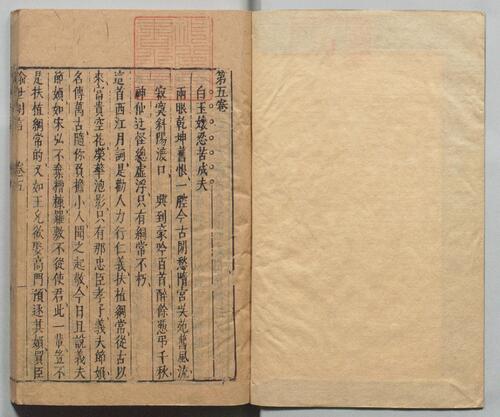 第五卷
白玉娘忍苦成夫
兩眼乾坤舊恨一腔今古閒愁隋宮吳苑舊風流
寂寞斜陽渡口 興到豪吟百首醉餘憑弔千秋
神仙迂怪總虛浮只有綱常不朽
這首西江月詞是勸人力行仁義扶植綱常從古以
來富貴空花榮華泡影只有那忠臣孝子義夫節婦
名傳萬古隨你負擔小人聞之起敬今日且說義夫
節婦如宋弘不棄糟糠羅敷不從使君此一輩豈不
是扶植綱常的又如王允欲娶高門預逐其婦買臣
喻世明言 卷五